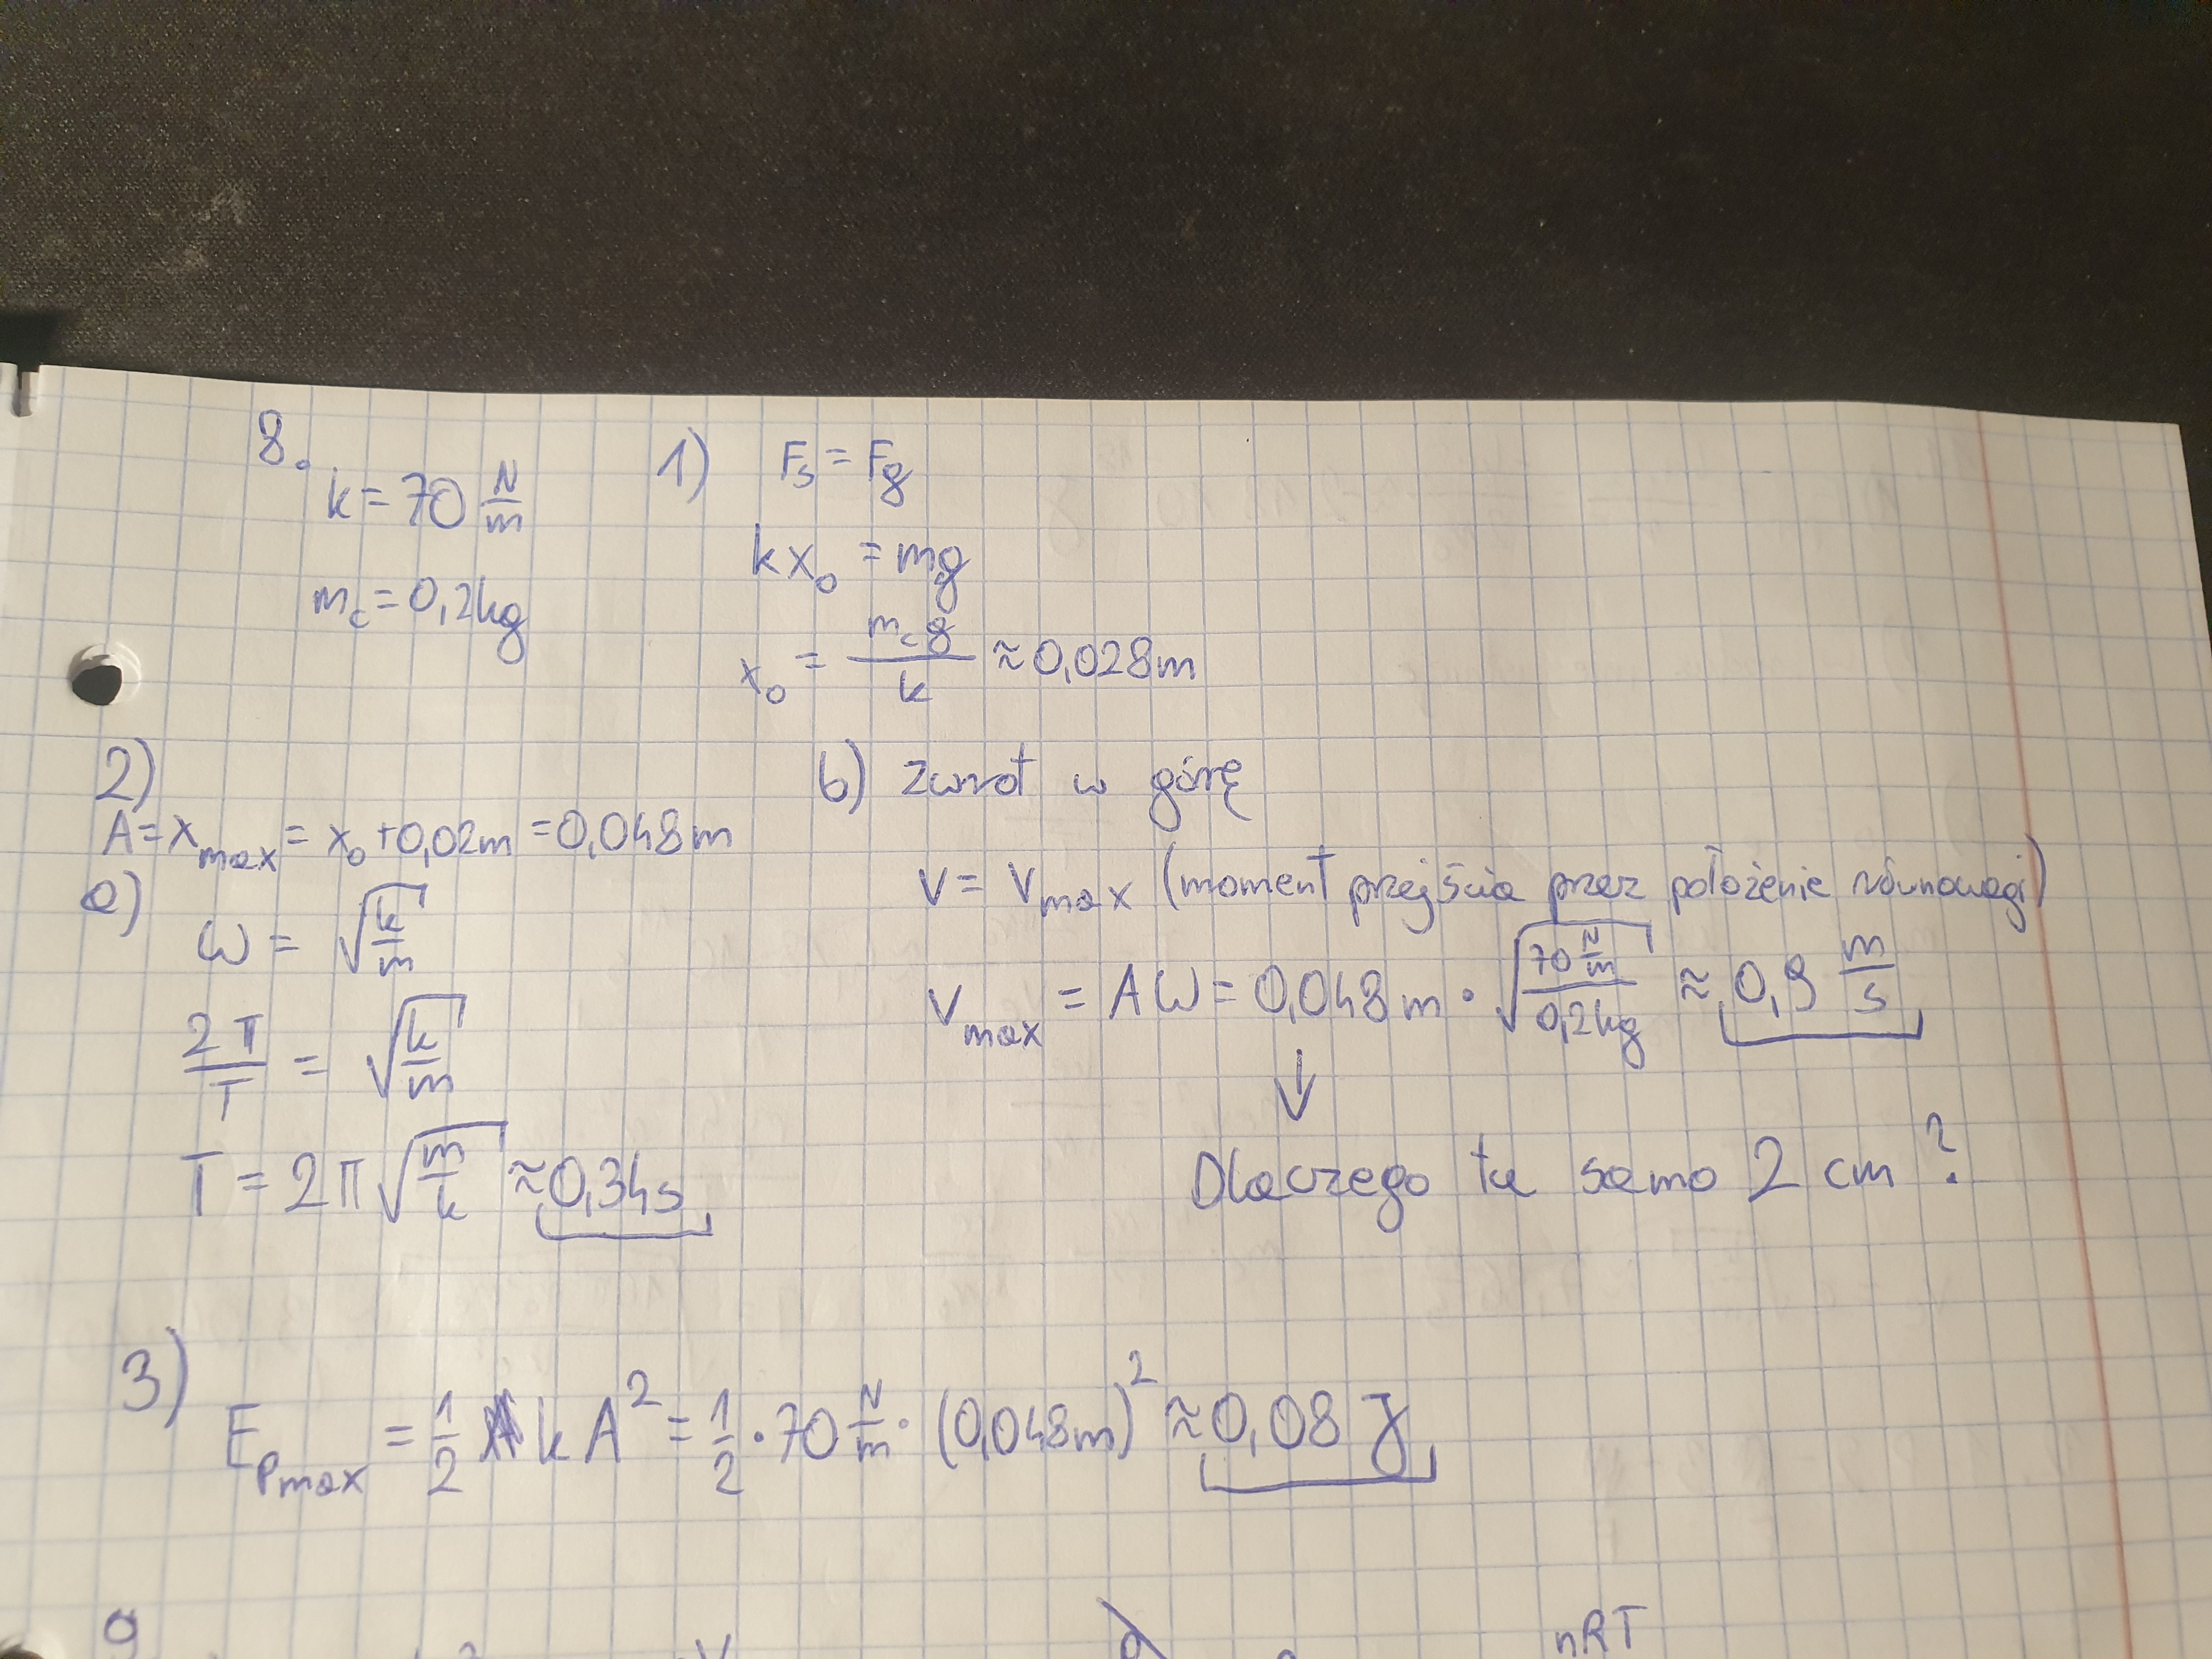 8.
k = 70 N/m
m_c = 0,2kg
1) F_s = F_g
kx_0 = mg
x_0 = m_c g / k ≈ 0,028m
2)
A = x_max = x_0 + 0,02m = 0,048m
a)
ω = √(k/m)
2π/T = √(k/m)
T = 2π√(m/k) ≈ 0,34s
b) zwrot w górę
v = v_max (moment przejścia przez położenie równowagi)
v_max = Aω = 0,048m · √(70 N/m / 0,2kg) ≈ 0,9 m/s
↓
Dlaczego tu samo 2 cm?
3)
E_pmax = 1/2 kA² = 1/2 · 70 N/m · (0,048m)² ≈ 0,08 J
9
nRT